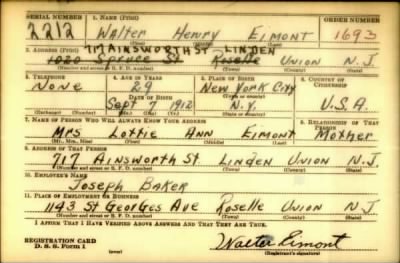 SERIAL NUMBER 1. NAME (Print) ORDER NUMBER
2212 Walter Henry Eimont 1693
(First) (Middle) (Last)
717 AINSWORTH ST LINDEN
2. ADDRESS (Print)
1020 Spruce St Roselle Union N.J.
(Number and street or R. F. D. number) (Town) (County) (State)
3. TELEPHONE 4. AGE IN YEARS 5. PLACE OF BIRTH 6. COUNTRY OF CITIZENSHIP
None 29 New York City
DATE OF BIRTH (Town or county)
Sept 7 1912 N.Y. U.S.A.
(Exchange) (Number) (Mo.) (Day) (Yr.) (State or country)
7. NAME OF PERSON WHO WILL ALWAYS KNOW YOUR ADDRESS 8. RELATIONSHIP OF THAT PERSON
Mrs Lottie Ann Eimont Mother
(Mr., Mrs., Miss) (First) (Middle) (Last)
9. ADDRESS OF THAT PERSON
717 Ainsworth St. Linden Union N.J.
(Number and street or R. F. D. number) (Town) (County) (State)
10. EMPLOYER'S NAME
Joseph Baker
11. PLACE OF EMPLOYMENT OR BUSINESS
1143 St Georges Ave Roselle Union N.J.
(Number and street or R. F. D. number) (Town) (County) (State)
I AFFIRM THAT I HAVE VERIFIED ABOVE ANSWERS AND THAT THEY ARE TRUE.
REGISTRATION CARD
D. S. S. Form 1 Walter Eimont
(Registrant's signature)